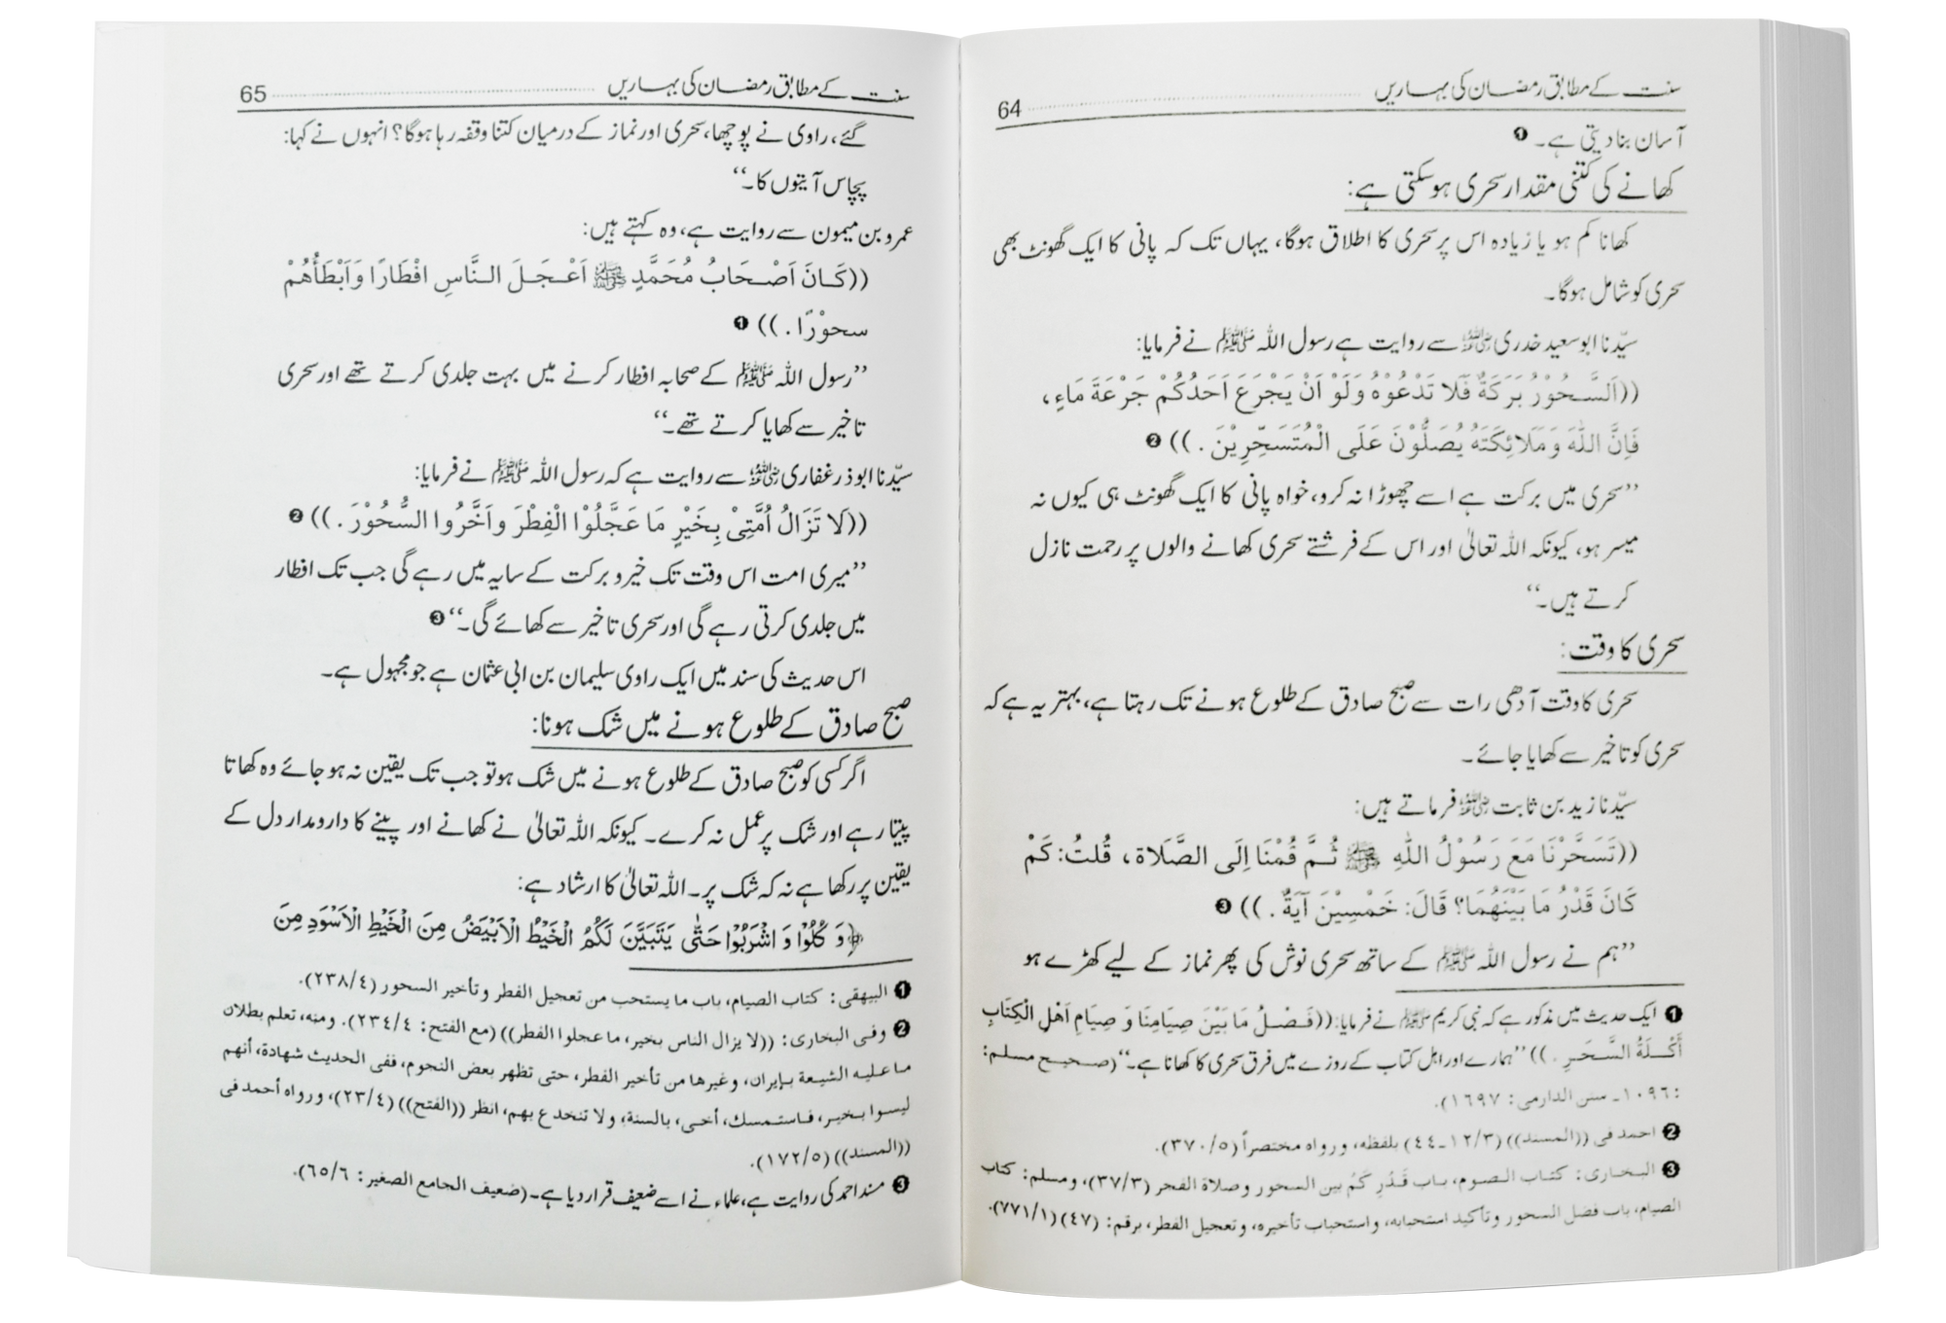 سنت کے مطابق رمضان کی بہاریں ........................ 64
آسان بنا دیتی ہے۔ ❶
کھانے کی کتنی مقدار سحری ہوسکتی ہے:
کھانا کم ہو یا زیادہ اس پر سحری کا اطلاق ہوگا، یہاں تک کہ پانی کا ایک گھونٹ بھی
سحری کو شامل ہوگا۔
سیّدنا ابوسعید خدری رضی اللہ عنہ سے روایت ہے رسول اللہ ﷺ نے فرمایا:
((اَلسَّحُوْرُ بَرَكَةٌ فَلَا تَدْعُوْهُ وَلَوْ اَنْ يَجْرَعَ اَحَدُكُمْ جَرْعَةَ مَاءٍ،
فَاِنَّ اللّٰهَ وَمَلَائِكَتَهُ يُصَلُّوْنَ عَلَى الْمُتَسَحِّرِيْنَ . )) ❷
’’سحری میں برکت ہے اسے چھوڑا نہ کرو، خواہ پانی کا ایک گھونٹ ہی کیوں نہ
میسر ہو، کیونکہ اللہ تعالیٰ اور اس کے فرشتے سحری کھانے والوں پر رحمت نازل
کرتے ہیں۔‘‘
سحری کا وقت:
سحری کا وقت آدھی رات سے صبح صادق کے طلوع ہونے تک رہتا ہے، بہتر یہ ہے کہ
سحری کو تاخیر سے کھایا جائے۔
سیّدنا زید بن ثابت رضی اللہ عنہ فرماتے ہیں:
((تَسَحَّرْنَا مَعَ رَسُوْلُ اللّٰهِ ﷺ ثُمَّ قُمْنَا اِلَى الصَّلَاة ، قُلتُ: كَمْ
كَانَ قَدْرُ مَا بَيْنَهُمَا؟ قَالَ: خَمْسِيْنَ آيَةٌ . )) ❸
’’ہم نے رسول اللہ ﷺ کے ساتھ سحری نوش کی پھر نماز کے لیے کھڑے ہو
❶ ایک حدیث میں مذکور ہے کہ نبی کریم ﷺ نے فرمایا: ((فَصْلُ مَا بَيْنَ صِيَامِنَا وَ صِيَامِ اَهْلِ الْكِتَابِ
أَكْلَةُ السَّحَرِ . )) ’’ہمارے اور اہل کتاب کے روزے میں فرق سحری کا کھانا ہے۔‘‘ (صحیح مسلم:
: ١٠٩٦۔ سنن الدارمی: ١٦٩٧).
❷ احمد فی ((المسند)) (٣/١٢۔٤٤) بلفظہ، ورواہ مختصراً (٥/٣٧٠).
❸ البخاری: کتاب الصوم، باب قَدْرِ کَمْ بین السحور وصلاة الفجر (٣/٣٧)، ومسلم: کتاب
الصیام، باب فضل السحور وتأکید استحبابہ، واستحباب تأخیرہ، وتعجیل الفطر، برقم: (٤٧) (١/٧٧١).
سنت کے مطابق رمضان کی بہاریں ........................ 65
گئے، راوی نے پوچھا، سحری اور نماز کے درمیان کتنا وقفہ رہا ہوگا؟ انہوں نے کہا:
پچاس آیتوں کا۔‘‘
عمرو بن میمون سے روایت ہے، وہ کہتے ہیں:
((كَانَ اَصْحَابُ مُحَمَّدٍ ﷺ اَعْجَلَ النَّاسِ افْطَارًا وَاَبْطَأُهُمْ
سحوْرًا . )) ❶
’’رسول اللہ ﷺ کے صحابہ افطار کرنے میں بہت جلدی کرتے تھے اور سحری
تاخیر سے کھایا کرتے تھے۔‘‘
سیّدنا ابوذر غفاری رضی اللہ عنہ سے روایت ہے کہ رسول اللہ ﷺ نے فرمایا:
((لَا تَزَالُ اُمَّتِىْ بِخَيْرٍ مَا عَجَّلُوْا الْفِطْرَ وَاَخَّرُوا السُّحُوْرَ . )) ❷
’’میری امت اس وقت تک خیر و برکت کے سایہ میں رہے گی جب تک افطار
میں جلدی کرتی رہے گی اور سحری تاخیر سے کھائے گی۔‘‘ ❸
اس حدیث کی سند میں ایک راوی سلیمان بن ابی عثمان ہے جو مجہول ہے۔
صبح صادق کے طلوع ہونے میں شک ہونا:
اگر کسی کو صبح صادق کے طلوع ہونے میں شک ہو تو جب تک یقین نہ ہو جائے وہ کھاتا
پیتا رہے اور شک پر عمل نہ کرے۔ کیونکہ اللہ تعالیٰ نے کھانے اور پینے کا دارومدار دل کے
یقین پر رکھا ہے نہ کہ شک پر۔ اللہ تعالیٰ کا ارشاد ہے:
﴿وَ كُلُوْا وَ اشْرَبُوْا حَتّٰى يَتَبَيَّنَ لَكُمُ الْخَيْطُ الْاَبْيَضُ مِنَ الْخَيْطِ الْاَسْوَدِ مِنَ
❶ البیهقی: کتاب الصیام، باب ما یستحب من تعجیل الفطر وتأخیر السحور (٤/٢٣٨).
❷ وفی البخاری: ((لا یزال الناس بخیر، ما عجلوا الفطر)) (مع الفتح: ٤/٢٣٤). ومنہ، تعلم بطلان
ما علیہ الشیعة بإیران، وغیرها من تأخیر الفطر، حتی تظهر بعض النجوم، ففی الحدیث شهادة، أنهم
لیسوا بخیر، فاستمسك، أخی، بالسنة، ولا تنخدع بهم، انظر ((الفتح)) (٤/٢٣)، ورواہ أحمد فی
((المسند)) (٥/١٧٢).
❸ مسند احمد کی روایت ہے، علماء نے اسے ضعیف قرار دیا ہے۔ (ضعیف الجامع الصغیر: ٦/٦٥).